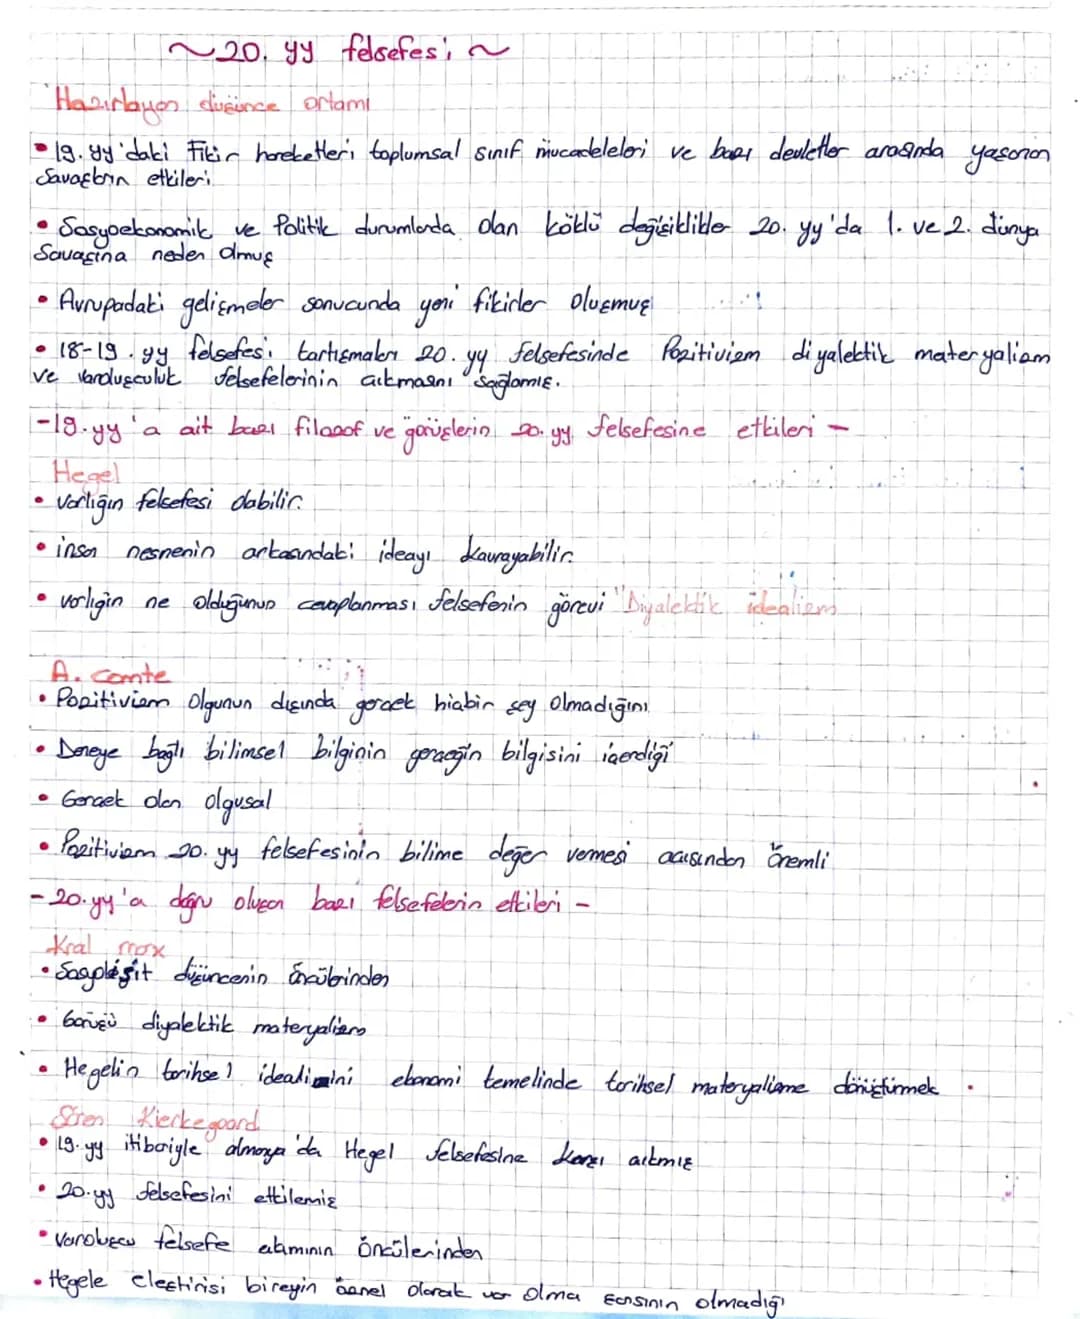 ~20. yy felsefesi~
Hazırlayan düşünce ortamı
• 19. yy'daki Fikir hareketleri toplumsal sınıf mücadeleleri ve bazı devletler arasında yaşanan
Savaşların etkileri
• Sosyoekonomik ve Politik durumlarda olan köklü değişiklikler 20. yy'da 1. ve 2. dünya
Savaşına neden olmuş
• Avrupadaki gelişmeler sonucunda yeni fikirler oluşmuş
• 18-19. yy felsefesi tartışmaları 20. yy felsefesinde Pozitivizm diyalektik materyalizm
ve varoluşçuluk felsefelerinin çıkmasını sağlamış.
-19.yy'a ait bazı filozof ve görüşlerin 20. yy. felsefesine etkileri -
Hegel
• varlığın felsefesi olabilir.
• insan nesnenin arkasındaki ideayı kavrayabilir.
• varlıgın ne olduğunun cevaplanması felsefenin görevi "Diyalektik idealizm
A. comte
• Pozitivizm Olgunun dışında gerçek hiçbir şey olmadığını
• Deneye bağlı bilimsel bilginin gerçeğin bilgisini içerdiği
• Gerçek olan olgusal
• Pozitivizm 20. yy felsefesinin bilime değer vermesi açısından önemli
- 20.yy'a doğru oluşan bazı felsefelerin etkileri -
Kral marx
• Sosyalist düşüncenin öncülerinden
• Görüşü diyalektik materyalizm
• Hegelin tarihsel idealizmini ekonomi temelinde tarihsel materyalizme dönüştürmek.
Sören Kierkegaard
• 19. yy itibariyle almanya'da Hegel felsefesine karşı çıkmış
• 20.yy felsefesini etkilemiş
• Varoluşcu felsefe akımının öncülerinden
• Hegele eleştirisi bireyin özenel olarak var olma şansının olmadığı